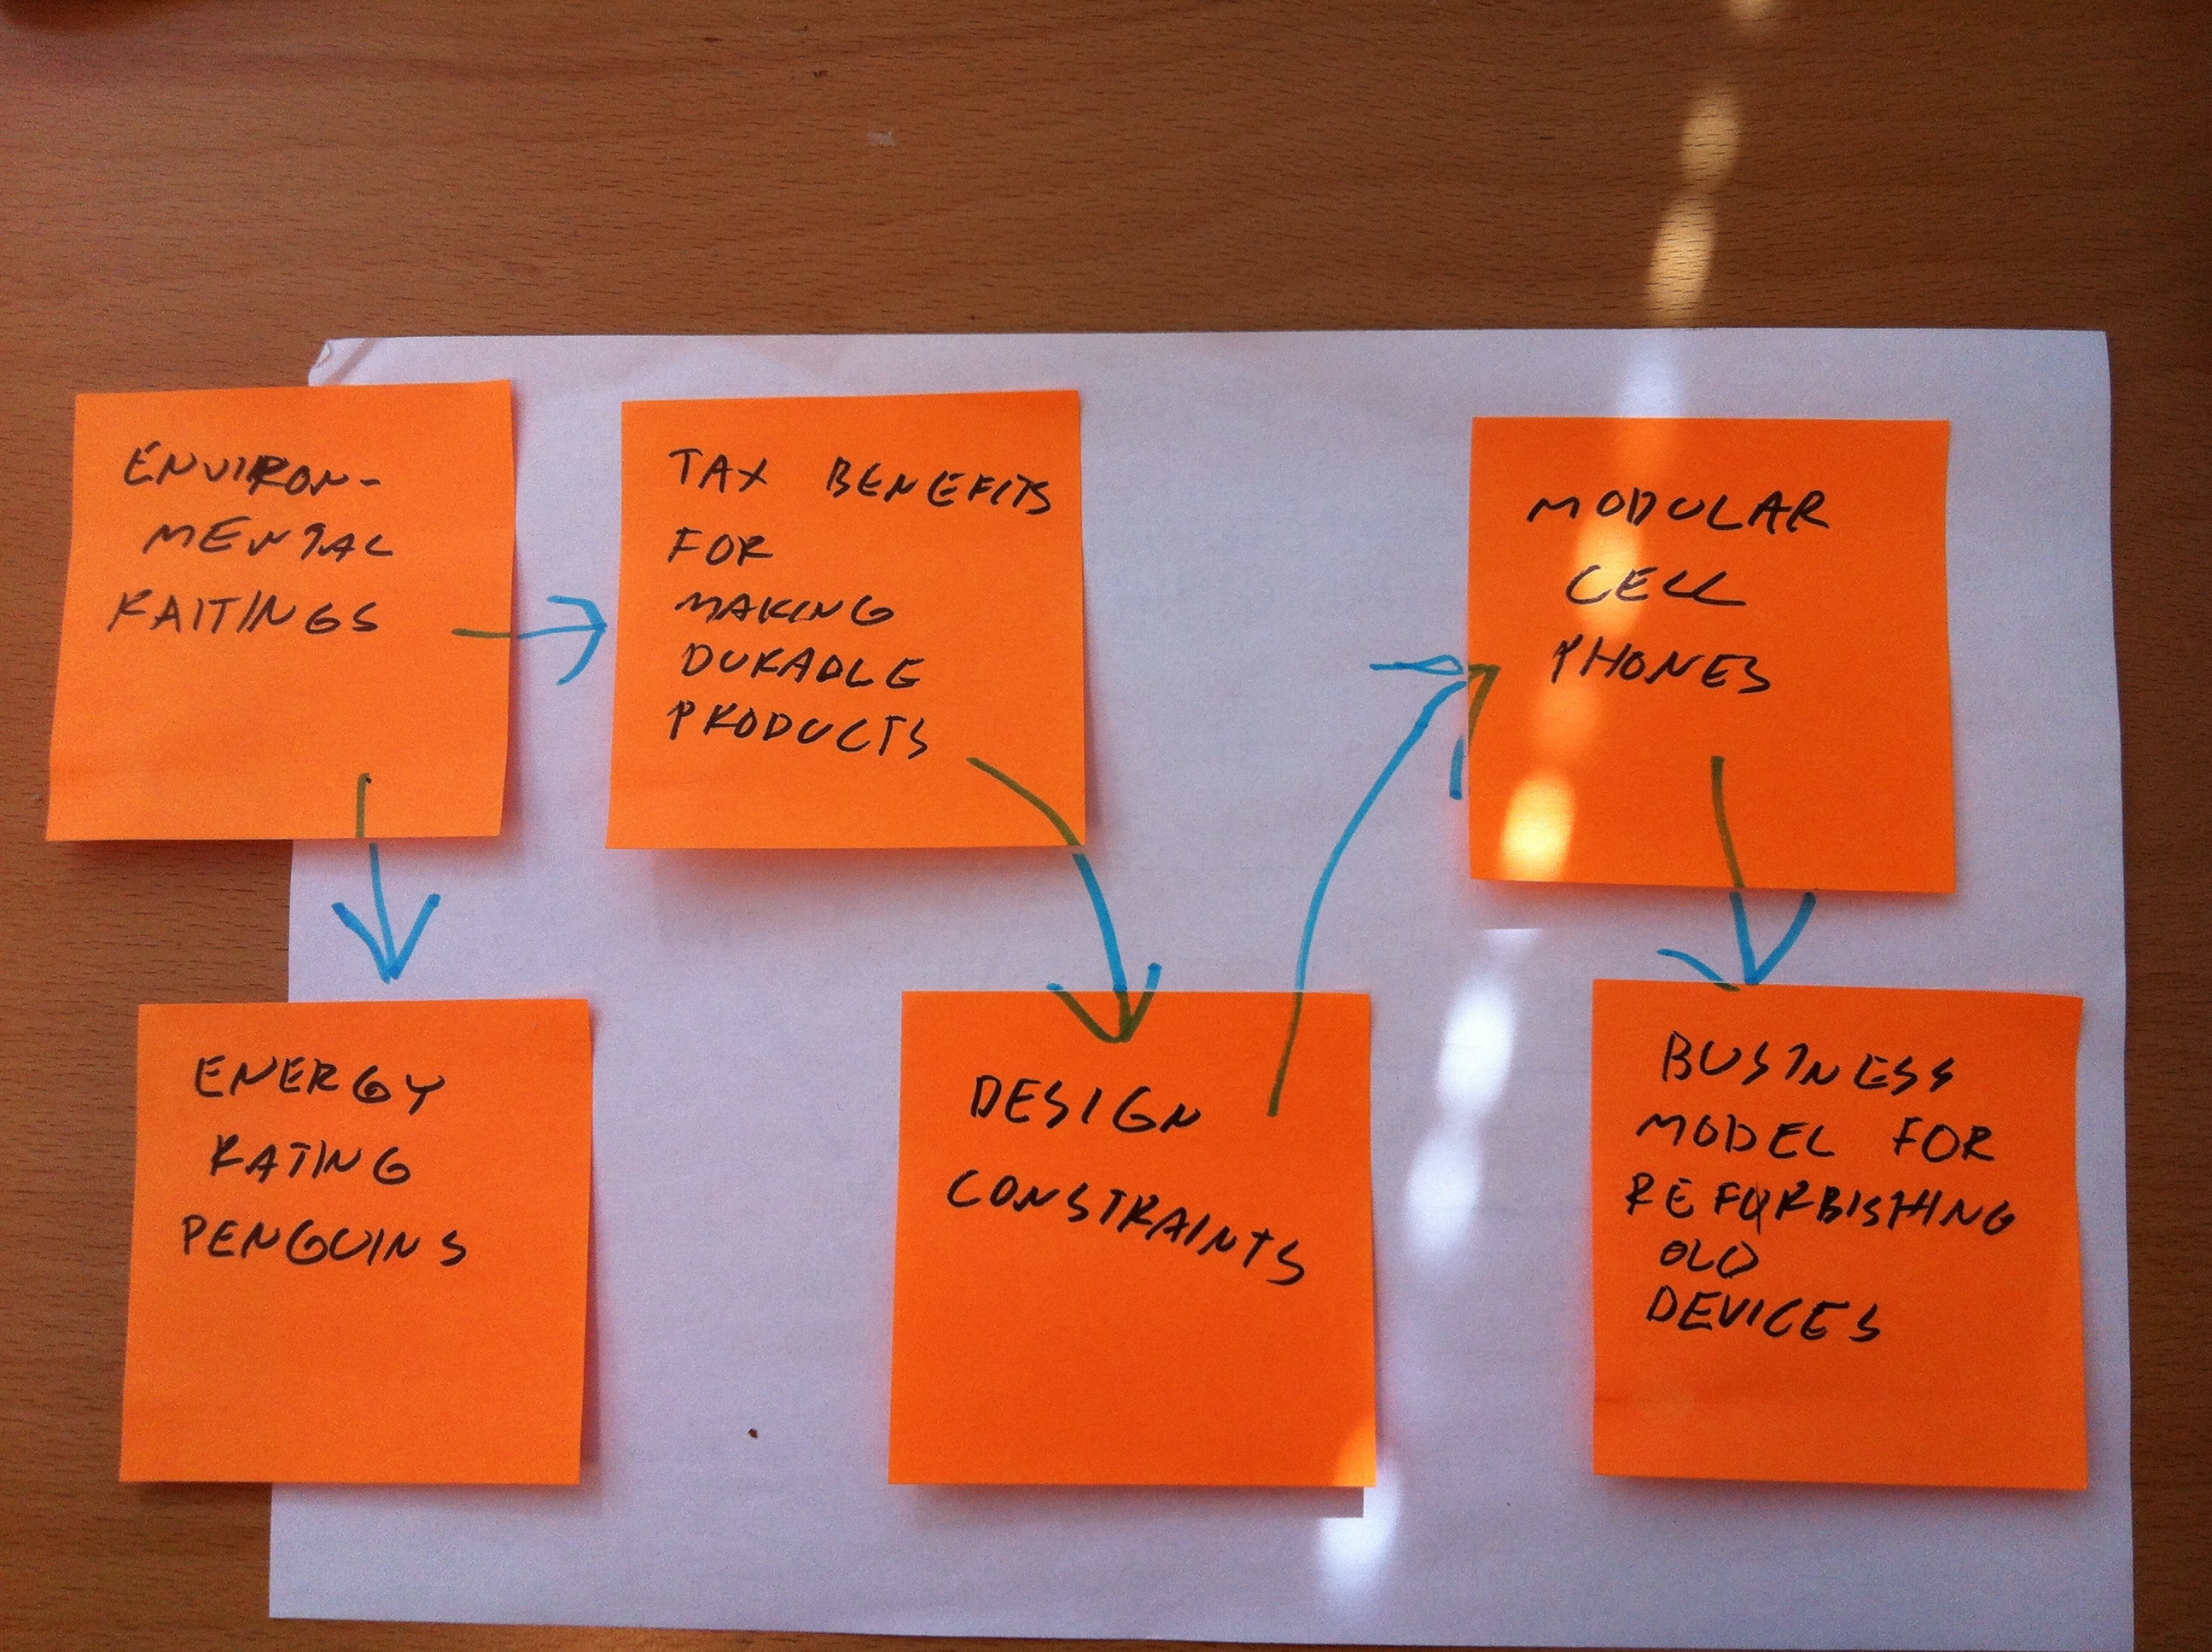 ENVIRON-
MENTAL
RAITINGS
TAX BENEFITS
FOR
MAKING
DURABLE
PRODUCTS
MODULAR
CELL
PHONES
ENERGY
RATING
PENGUINS
DESIGN
CONSTRAINTS
BUSINESS
MODEL FOR
REFURBISHING
OLD
DEVICES